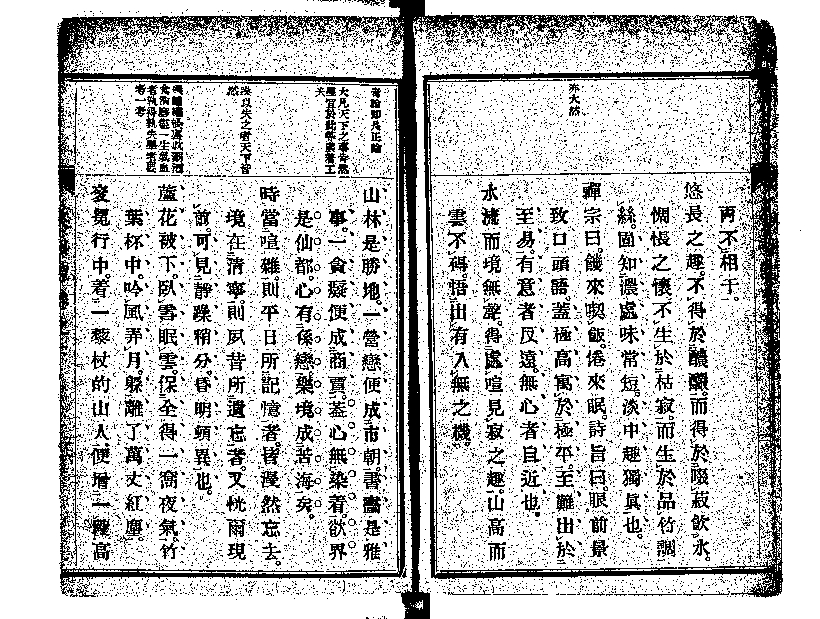 亦大然
兩不相干。
悠長之趣。不得於醲釅。而得於啜菽飲水。
惆悵之懷。不生於枯寂。而生於品竹調
絲。固知濃處味常短。淡中趣獨眞也。
禪宗曰。饑來喫飯。倦來眠。詩旨曰。眼前景
致口頭語。蓋極高寓於極平。至難出於
至易。有意者反遠。無心者自近也。
水流而境無聲。得處喧見寂之趣。山高而
雲不碍。悟出有入無之機。
大凡天下之事皆然
山林是勝地。一營戀便成市朝。書畵是雅
事。一貪癡便成商賈。蓋心無染着。欲界
是仙都。心有係戀。樂境成苦海矣。
時當喧雜。則平日所記憶者。皆漫然忘去。
境在清寧。則夙昔所遺忘者。又恍爾現
前。可見靜躁稍分。昏明頓異也。
蘆花被下。臥雪眠雲。保全得一窩夜氣。竹
葉杯中。吟風弄月。躱離了萬丈紅塵。
袞冕行中。着一藜杖的山人。便增一種高